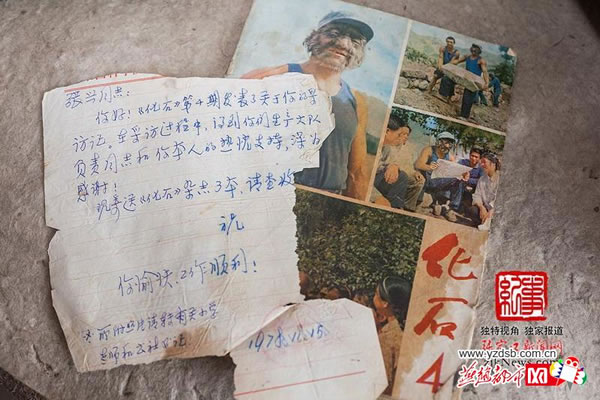 张兴同志:
你好!《化石》第4期发表了关于你的寻
访记。在采访过程中,得到你们生产大队
负责同志和你本人的热忱支持,深为
感谢!
现寄送《化石》杂志3本,请查收
祝
你愉快、工作顺利!
1978.12.15
化石
4
纪事
独特视角 独家报道
www.yzdsb.com.cn
zjkNews.com
燕赵都市网